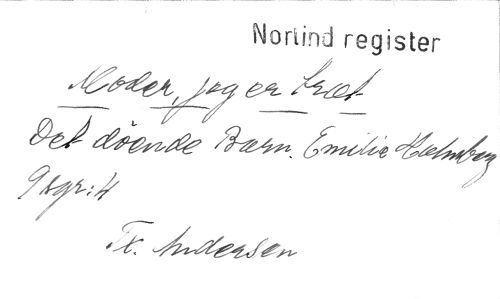 Norlind register
Moder, jag er træt
Det döende Barn. Emilie Holmberg
9 sgr: 4
Tx. Andersen